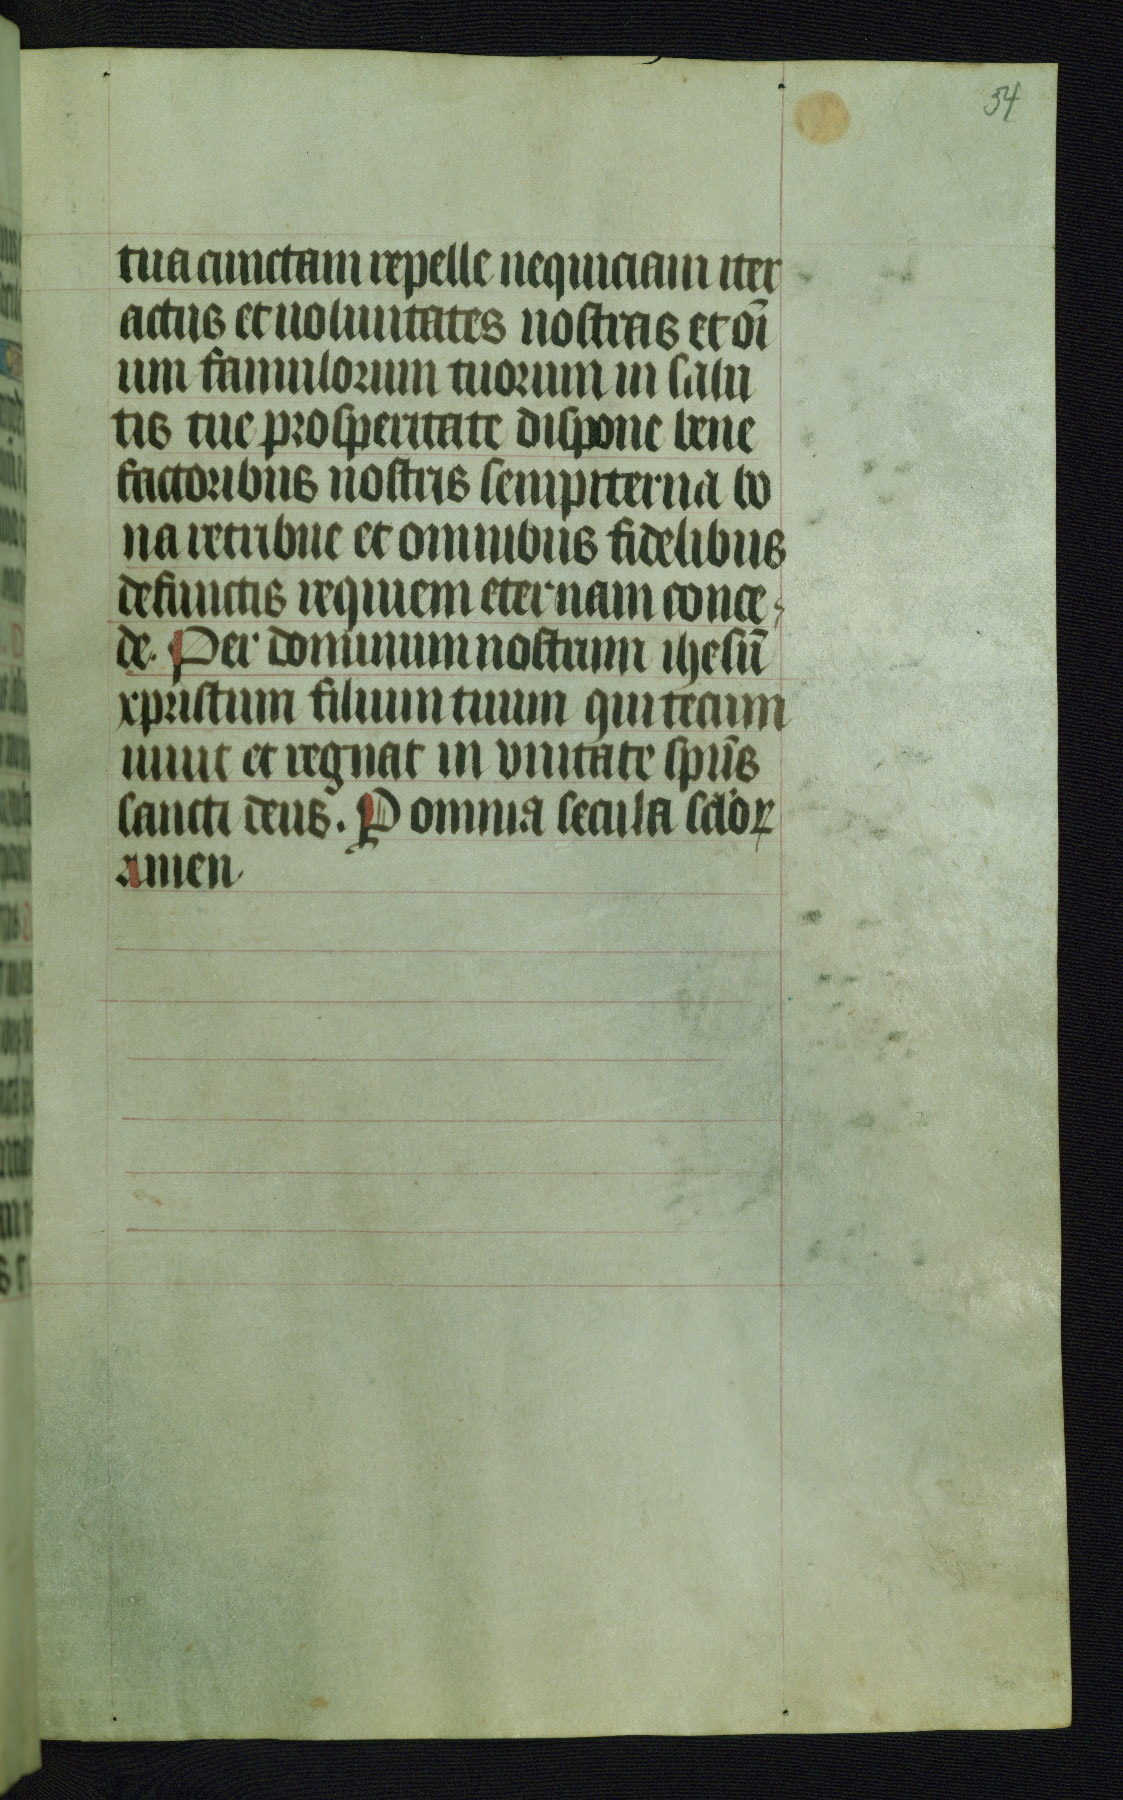 54
tua cunctam repelle nequiciam iter
actus et uoluntates nostras et oı̄
um famulorum tuorum in salu
tis tue prosperitate dispone bene
factoribus nostris sempiterna bo
na retribue et omnibus fidelibus
defunctis requiem eternam conce
de. Per dominum nostrum ihesū
xpristum filium tuum qui tecum
uiuit et regnat in vnitate spūs
sancti deus. P omnia secula sclo̕ꝝ
amen